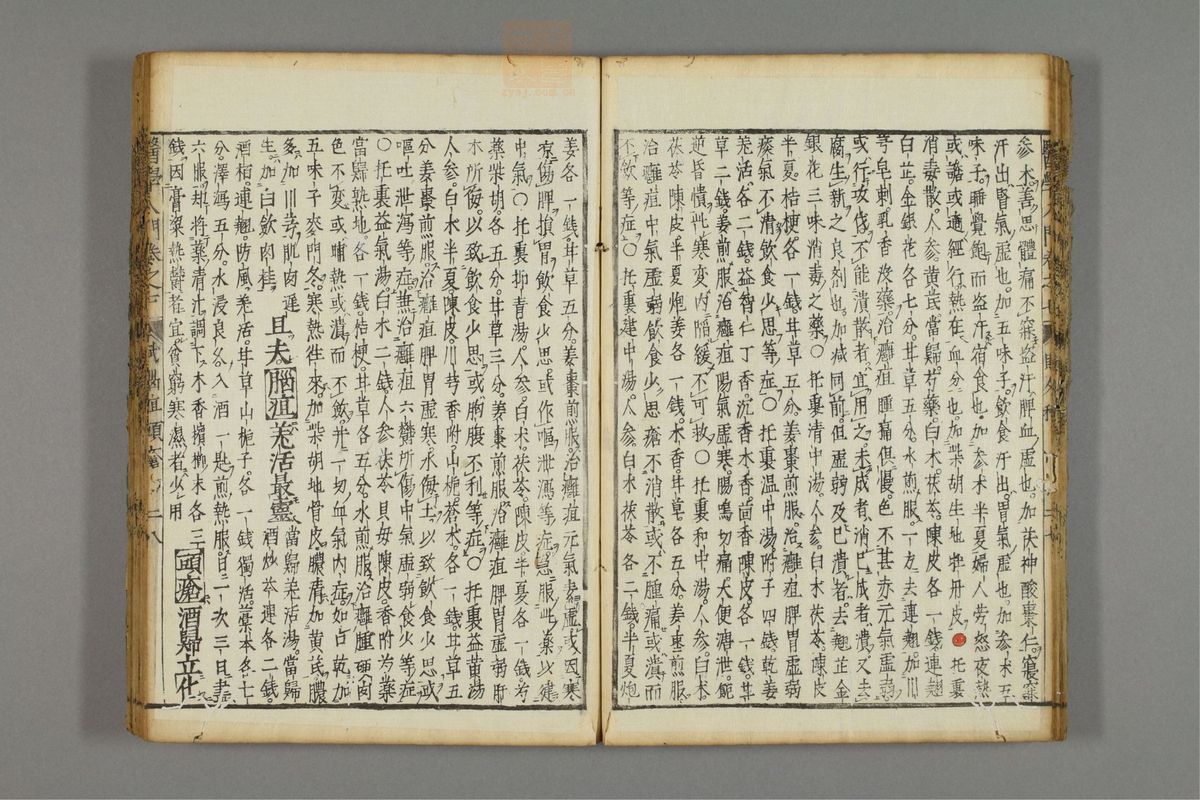 參朮姜思體痛不寐盜汗脾血虛也加茯神酸棗仁寢寐
汗出腎氣虛也加五味子飲食汗出胃氣虛也加參朮五
味子睡覺飽而盜汗宿食也加參朮半夏婦人勞怒夜熱
或譫或適經行熱在血分也加柴胡生地牡丹皮 托裏
消毒散人參黃芪當歸芍藥白朮茯苓陳皮各一錢連翹
白芷金銀花各七分甘草五分水煎服一方去連翹加川
芎皂刺乳香沒藥治癰疽腫痛俱慢色不甚赤元氣虛弱
或行攻伐不能潰散者宜用之未成者消已成者潰又去
腐生新之良劑也加減同前但虛弱及已潰者去翹芷金
銀花三味消毒之藥○托裏清中湯人參白朮茯苓陳皮
半夏桔梗各一錢甘草五分姜棗煎服治癰疽脾胃虛弱
痰氣不清飲食少思等症○托裏溫中湯附子四錢乾姜
羌活各二錢益智仁丁香沉香木香茴香陳皮各一錢甘
草二錢姜煎服治癰疽陽氣虛寒腸鳴切痛大便溏泄
逆昏憒此寒變內陷緩不可救○托裏和中湯人參白朮
茯苓陳皮半夏炮姜各一錢木香甘草各五分姜棗煎服
治癰疽中氣虛弱飲食少思瘡不消散或不腫痛或潰而
不斂等症○托裏建中湯人參白朮茯苓各二錢半夏炮
姜各一錢甘草五分姜棗煎服治癰疽元氣素虛或因寒
涼傷脾損胃飲食少思或作嘔泄瀉等症急服此藥以建
中氣○托裏抑青湯人參白朮茯苓陳皮半夏各一錢芍
藥柴胡各五分甘草三分姜棗煎服治癰疽脾胃虛弱肝
木所侮以致飲食少思或胸膈不利等症○托裏益黃湯
人參白朮半夏陳皮川芎香附山梔蒼朮各一錢甘草五
分姜棗煎服治癰疽脾胃虛寒水侮土以致飲食少思或
嘔吐泄瀉等症兼治癰疽六鬱所傷中氣虛弱食少等症
○托裏益氣湯白朮二錢人參茯苓貝母陳皮香附芍藥
當歸熟地各一錢桔梗甘草各五分水煎服治癰腫硬肉
色不變或晡熱或潰而不斂并一切血氣內症如口乾加
五味子麥門冬寒熱徃來加柴胡地骨皮膿清加黃芪膿
多加川芎肌肉遲
生加白斂肉桂 且夫腦疽羌活最靈 當歸羌活湯當歸
酒柏連翹防風羌活甘草山梔子各一錢獨活藁本各七
酒炒芩連各二錢
分澤瀉五分水浸良久入酒一匙煎熱服日三次三日盡
六服却將藥清汁調下木香檳榔末各三
錢因膏粱熱鬱者宜食窮寒濕者少用 頭瘡酒歸立化
醫學入門卷之七